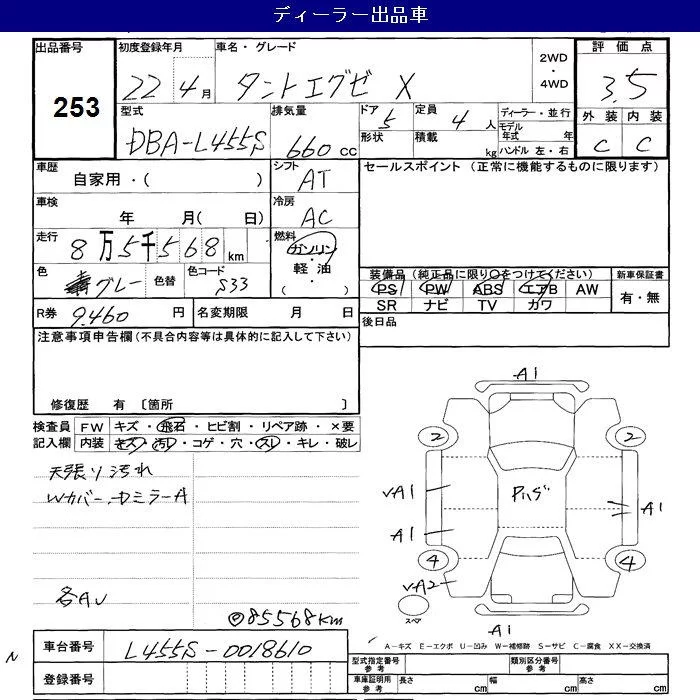 ディーラー出品車
出品番号
253
初度登録年月
22 4月
車名・グレード
タントエグゼ X
2WD
・
4WD
評価点
3.5
型式
DBA-L455S
排気量
660 cc
ドア
5
定員
4 人
形状
積載
kg
ディーラー・並行
モデル年式 年
ハンドル 左・右
外装 内装
C C
車歴
自家用・( )
シフト
AT
セールスポイント (正常に機能するものに限ります)
車検
年 月( 日)
冷房
AC
走行
8万5千568km
燃料
ガソリン
・
軽油
( )
色
グレー
色替
色コード
S33
装備品(純正品に限り○をつけてください)
PS PW ABS エアB AW
SR ナビ TV カワ
新車保証書
有・無
R券 9,460 円
名変期限 月 日
後日品
注意事項申告欄(不具合内容等は具体的に記入して下さい)
修復歴 有 〔箇所 〕
検査員
記入欄
FW キズ・飛石・ヒビ割・リペア跡・×要
内装 キズ・汚レ・コゲ・穴・スレ・キレ・破レ
天張り汚れ
Wカバー、ドミラーA
各AU
◎85568km
A1
2 2
UA1
Pいダ
A1
A1
4 4
UA2
スペア
A1
A-キズ E-エクボ U-凹み W-補修跡 S-サビ C-腐食 XX-交換済
車台番号 L455S-0018610
登録番号
N
型式指定番号
参考
類別区分番号
参考
車庫証明用
参考
長さ cm 幅 cm 高さ cm